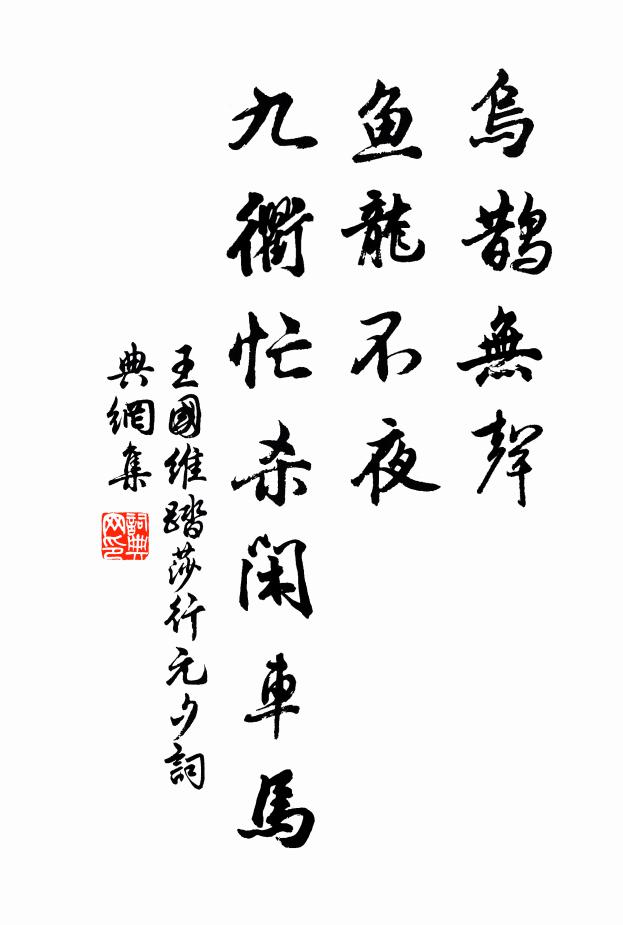 烏鹊無聲
鱼龍不夜
九衢忙杀闲車馬
王國維踏莎行元夕詞
典網集
詞典网印